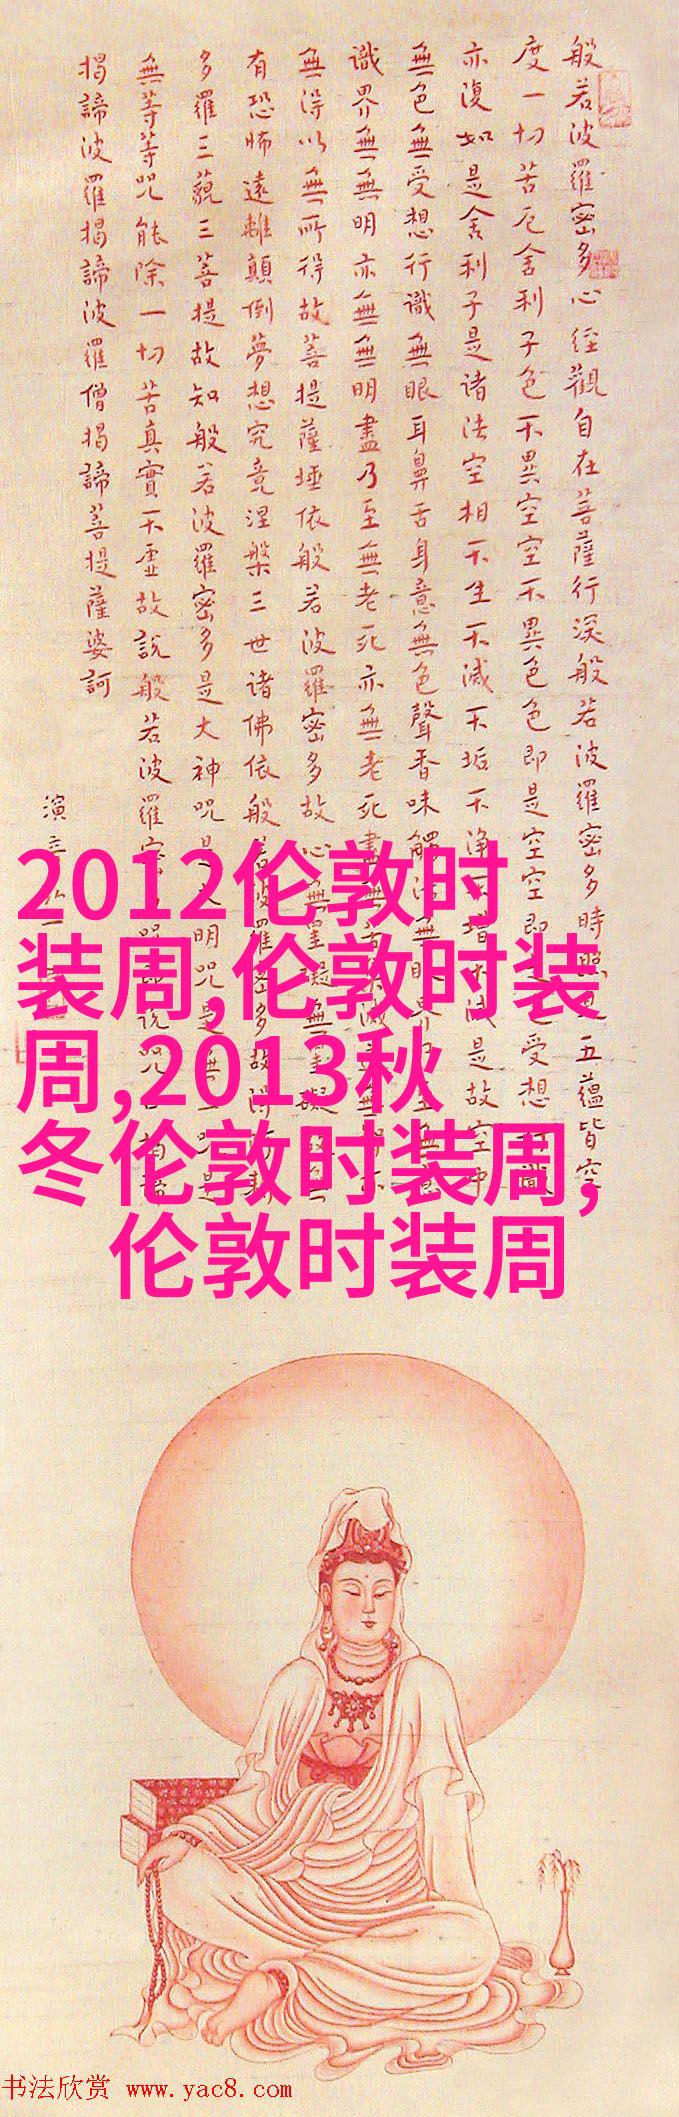 般若波羅密多心经觀自在菩薩行深般若波羅密多時照見五蕴皆空
度一切苦厄舍利子色不異空空不異色色即是空空即是色受想識
亦復如是舍利子是諸法空相不生不滅不垢不淨不增不減是故空中
無色無受想行識無眼耳鼻舌身意無色聲香味觸法無眼界至無意
識界無無明亦無無明盡乃至無老死亦無老死盡無滅無亦
無得以無所得故菩提薩埵依般若波羅密多故心無罣礙無罣礙故無
有恐怖遠離顛倒夢想究竟涅槃三世诸佛依般若波羅密多故得
多羅三藐三菩提故知般若波羅密多是大神咒是大明咒是無咒是
無等等咒能除一切苦真實不虚故說般若波羅密咒即说咒揭諦
揭諦波羅揭諦波羅僧揭諦菩提薩婆訶
演音
2012伦敦时
装周,伦敦时装
周,2013秋
冬伦敦时装周,
伦敦时装周
书法欣赏 www.yac8.com